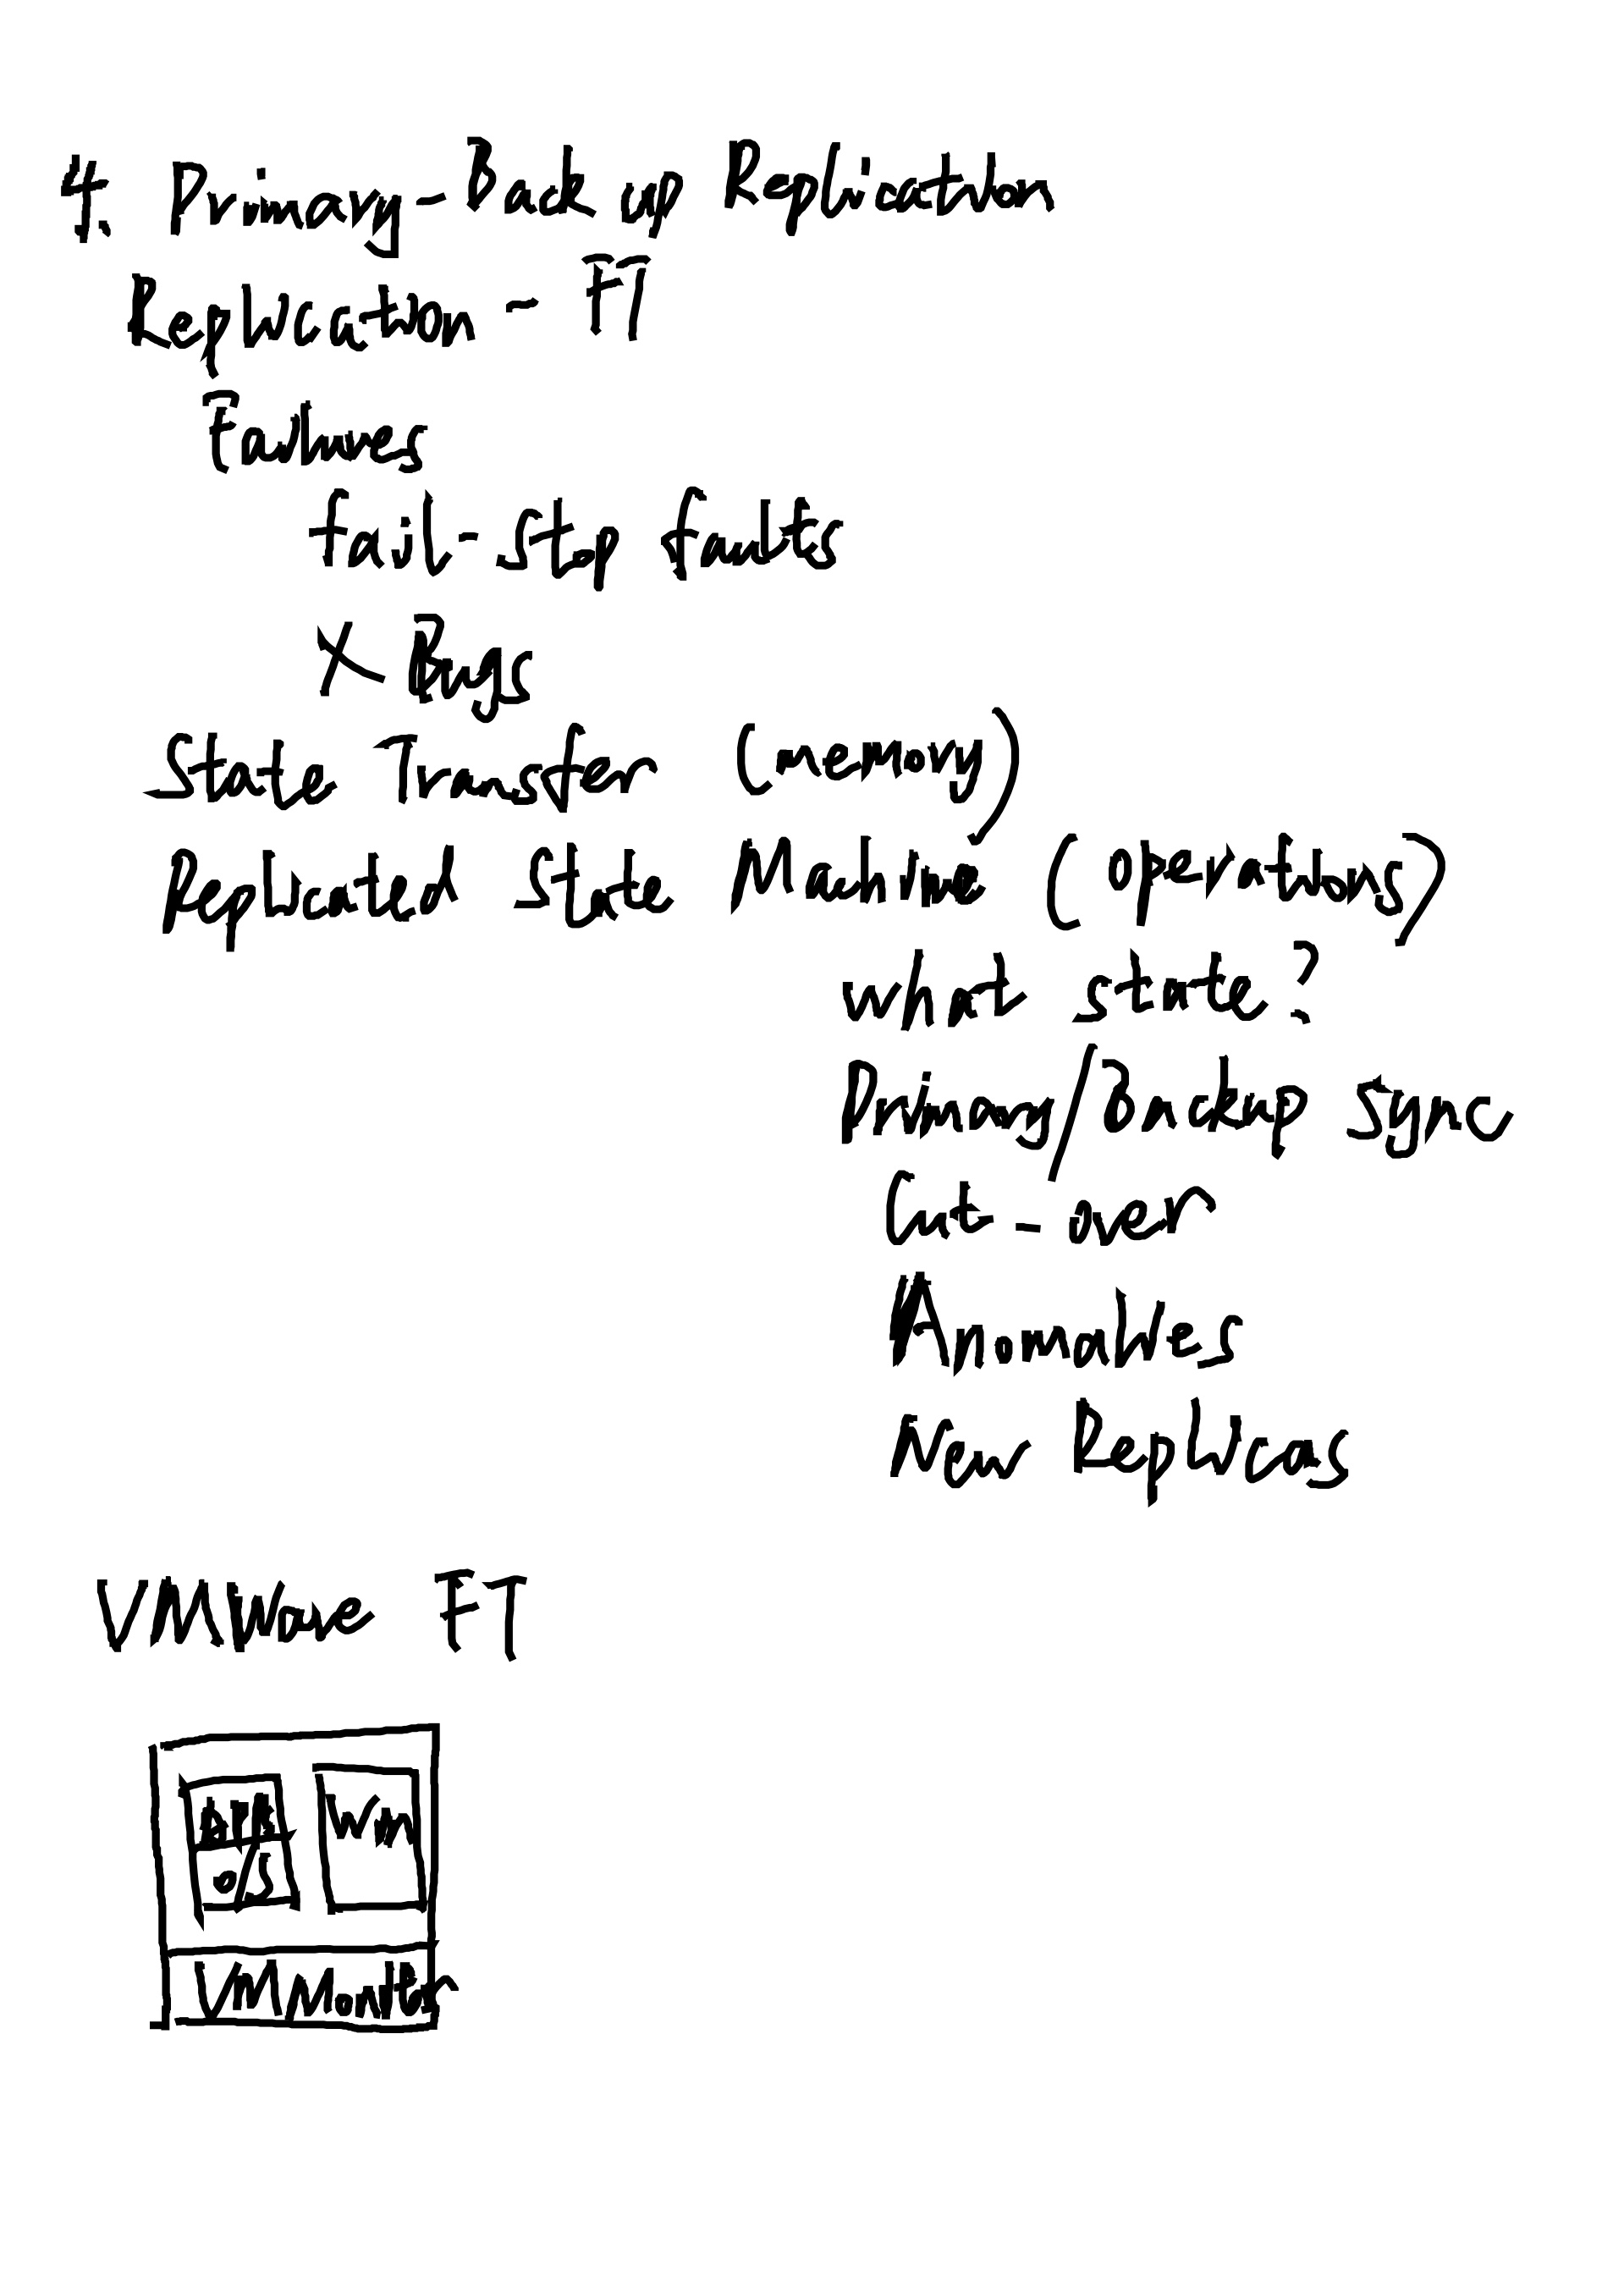 4. Primary-Back up Replication
Replication - FT
Failures
fail-stop faults
X Bugs
State Transfer (memory)
Replicated State Machine (operations)
what state?
Primary/Backup sync
Cut-over
Anomalies
New Replicas
VMWare FT
o/s
VMMonitor